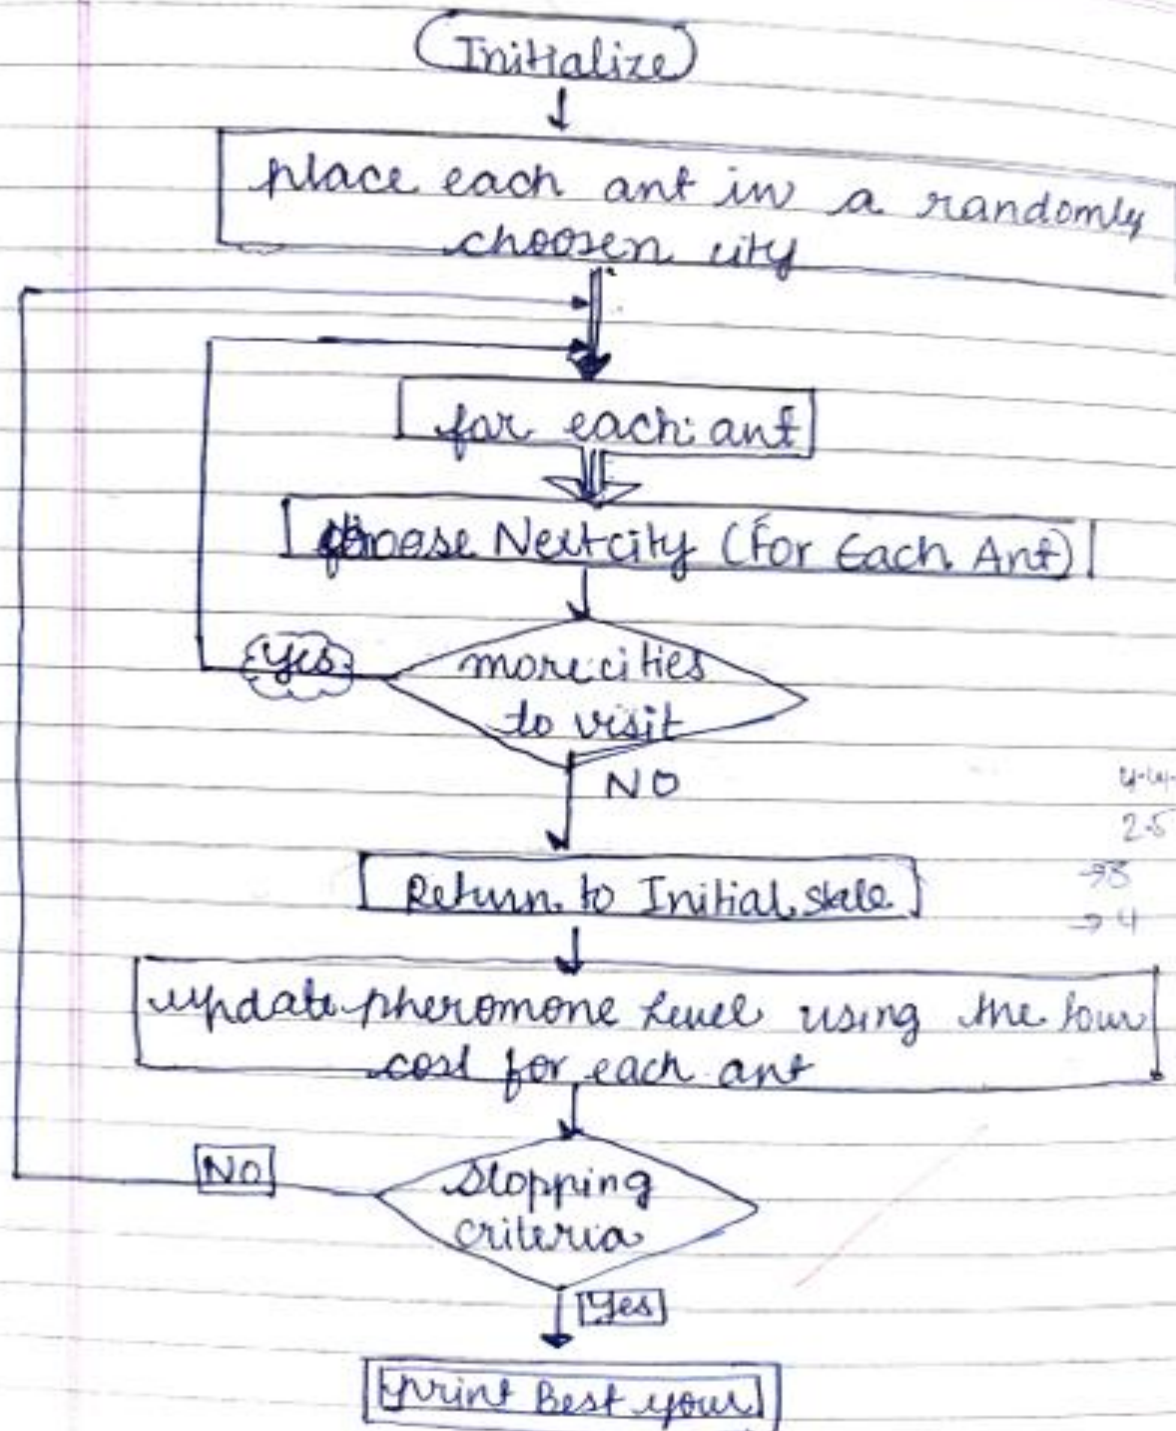 Initialize
place each ant in a randomly
choosen city
for each ant
choose Next city (For Each Ant)
Yes
more cities
to visit
NO
2.5
→3
→ 4
Return to Initial state
update pheromone level using the tour
cost for each ant
NO
Stopping
criteria
Yes
print Best your